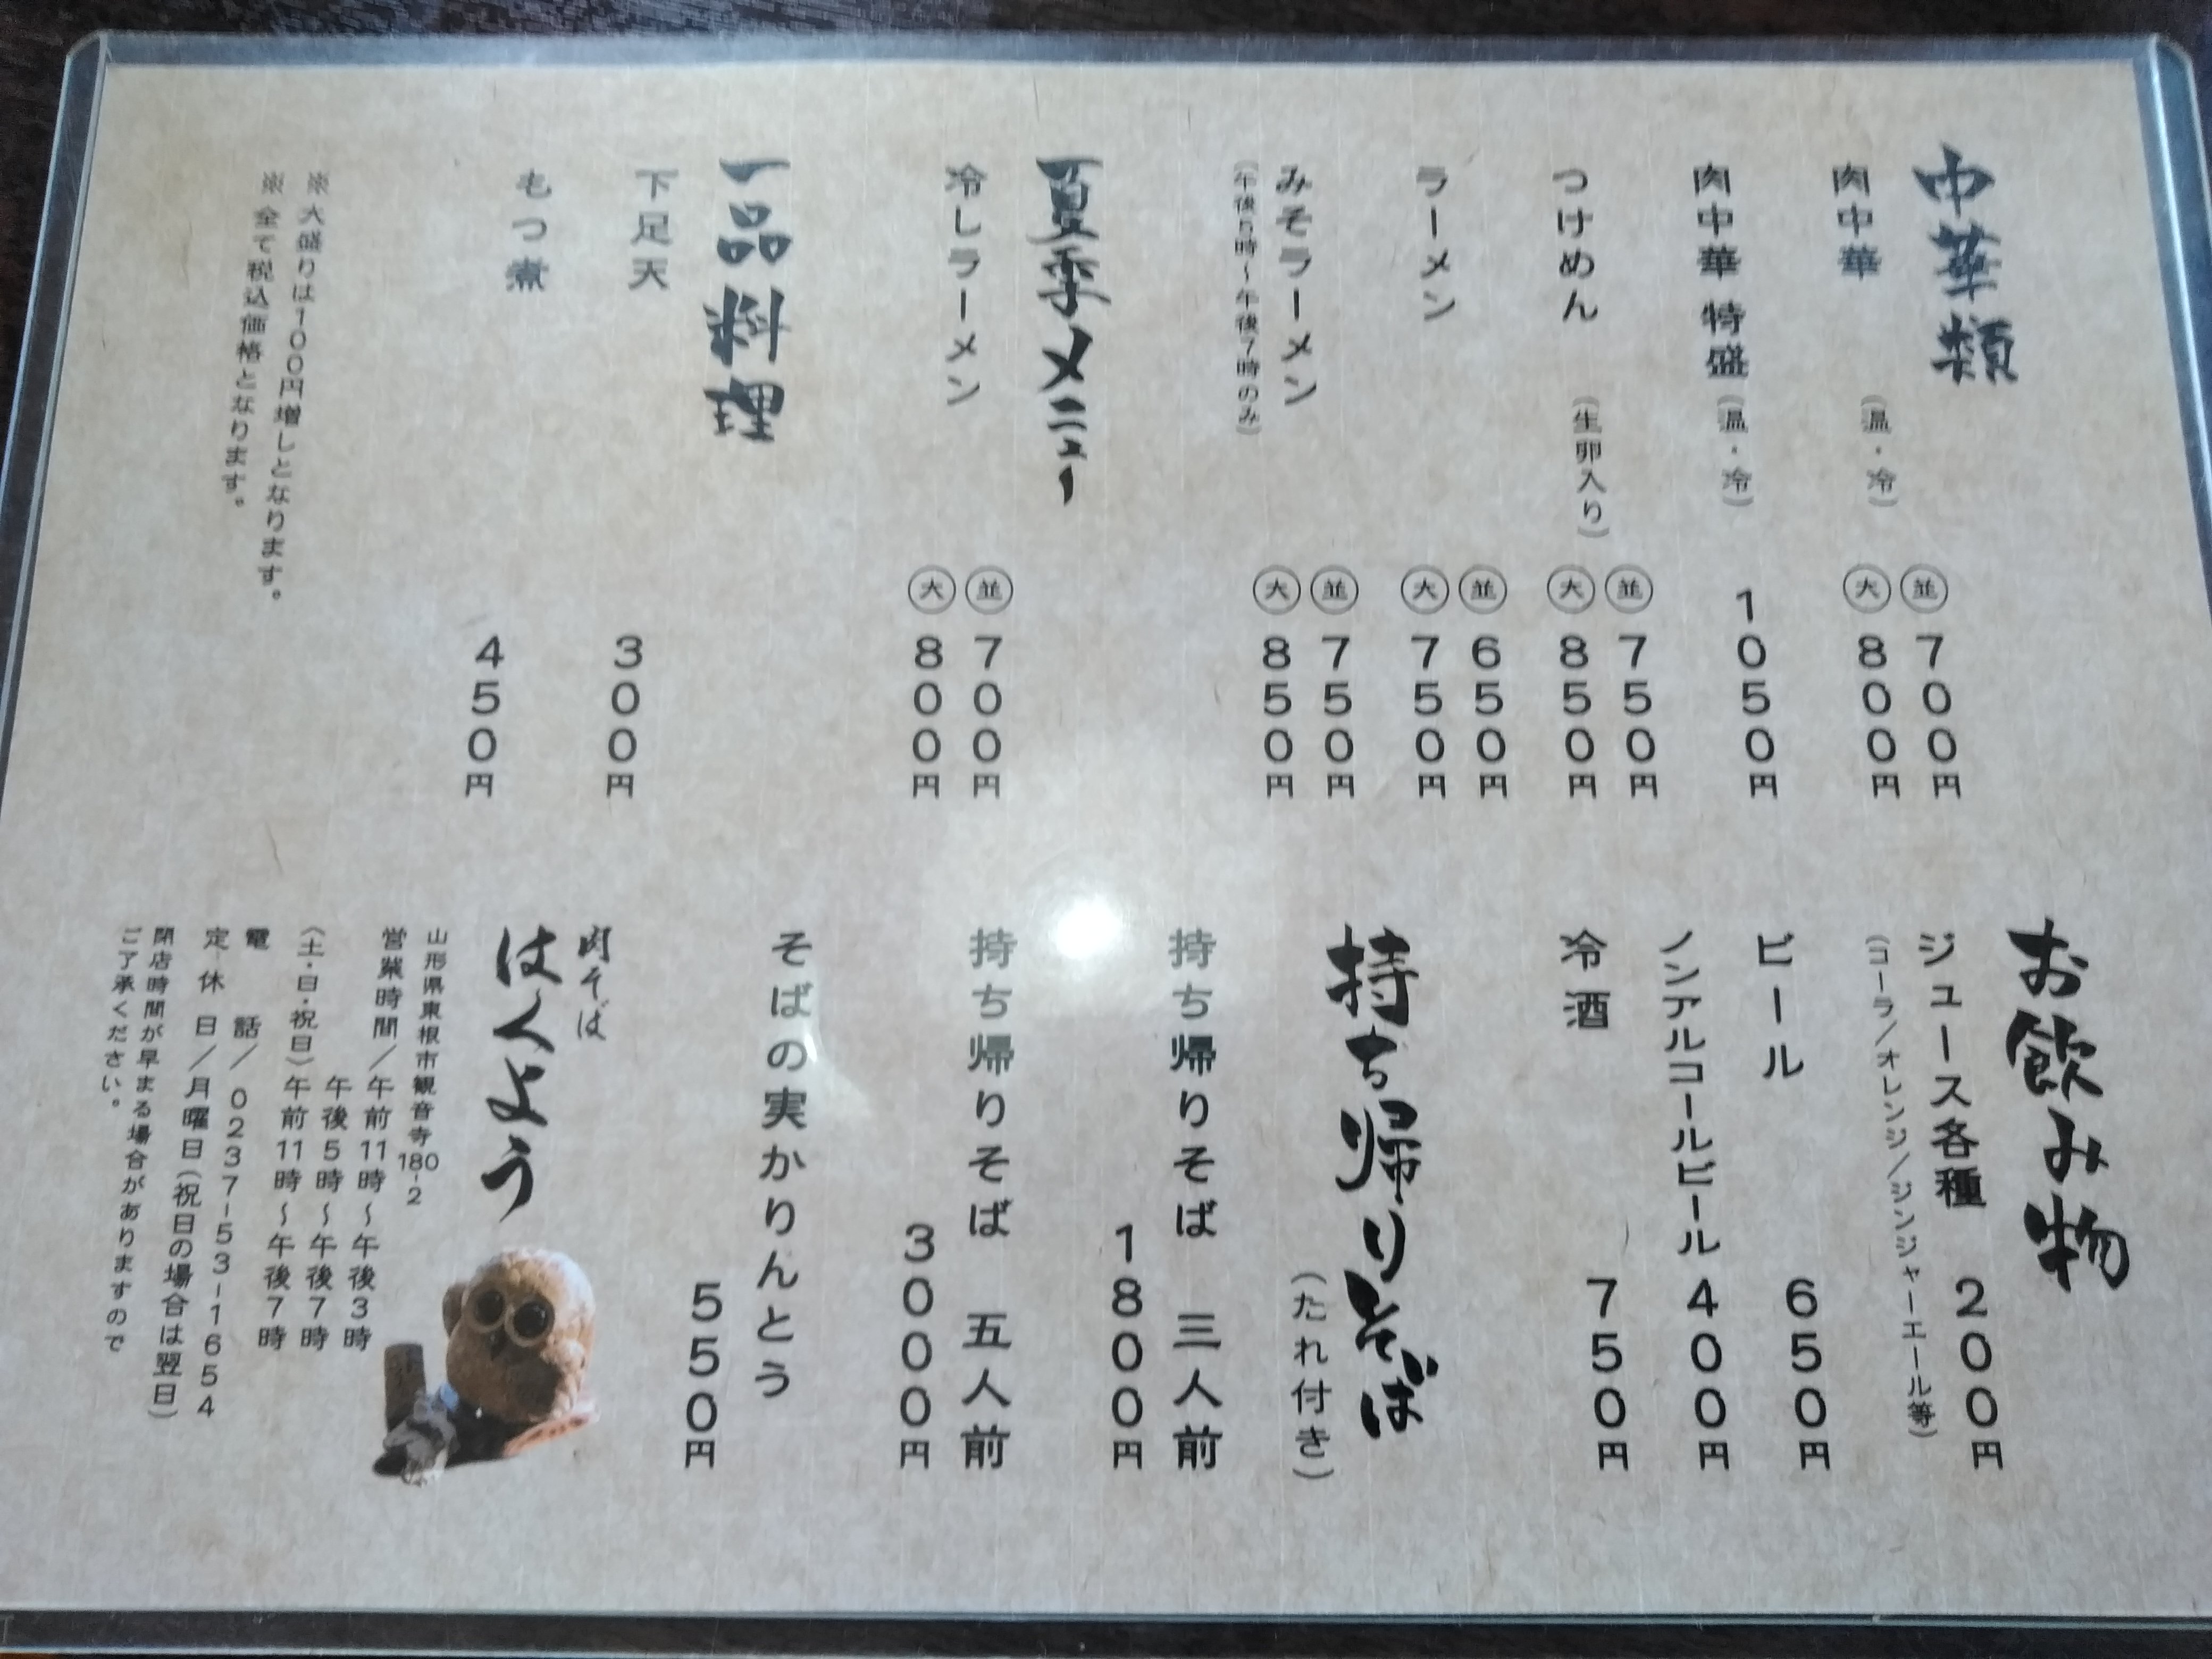 中華類
肉中華 (温・冷) 並 700円
大 800円
肉中華 特盛 (温・冷) 1050円
つけめん (生卵入り) 並 750円
大 850円
ラーメン 並 650円
大 750円
みそラーメン 並 750円
(午後5時〜午後7時のみ) 大 850円
夏季メニュー
冷しラーメン 並 700円
大 800円
一品料理
下足天 300円
もつ煮 450円
※大盛りは100円増しとなります。
※全て税込価格となります。
お飲み物
ジュース各種 200円
(コーラ/オレンジ/ジンジャーエール等)
ビール 650円
ノンアルコールビール 400円
冷酒 750円
持ち帰りそば
(たれ付き)
持ち帰りそば 三人前
1800円
持ち帰りそば 五人前
3000円
そばの実かりんとう
550円
肉そば
はくよう
山形県東根市観音寺180-2
営業時間/午前11時〜午後3時
午後5時〜午後7時
(土・日・祝日)午前11時〜午後7時
電話/0237-53-1654
定休日/月曜日(祝日の場合は翌日)
閉店時間が早まる場合がありますので
ご了承ください。